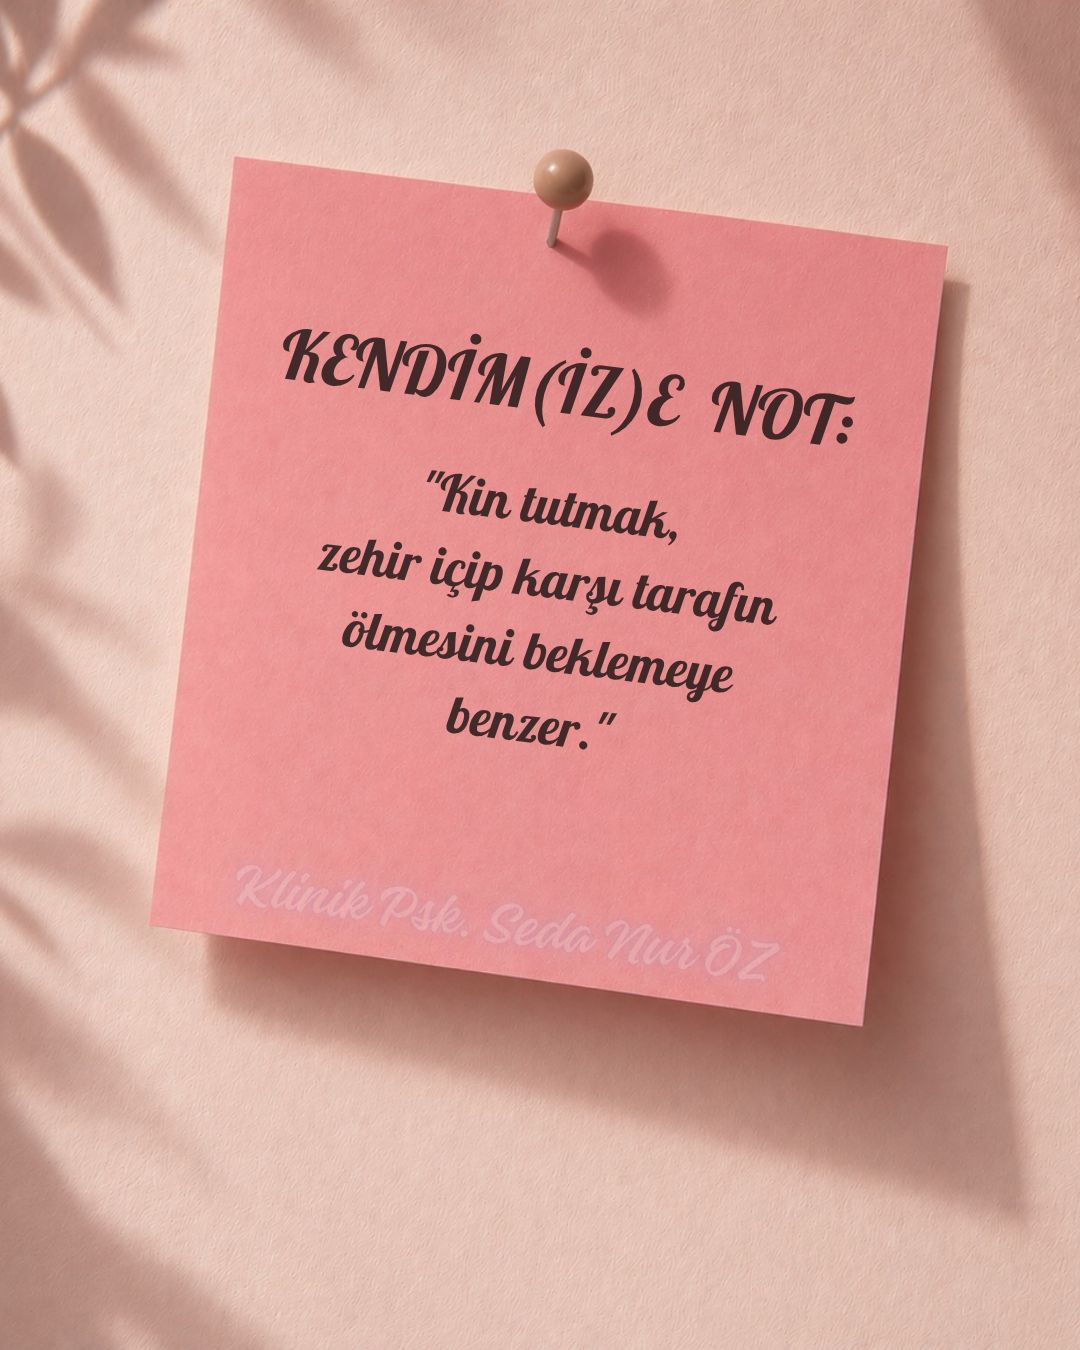 KENDİM(İZ)E NOT:
"Kin tutmak,
zehir içip karşı tarafın
ölmesini beklemeye
benzer."
Klinik Psk. Seda Nur ÖZ